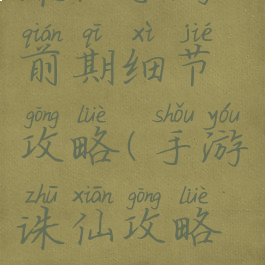 qián qī xì jié
前期细节
gōng lüè shǒu yóu
攻略(手游
zhū xiān gōng lüè
诛仙攻略